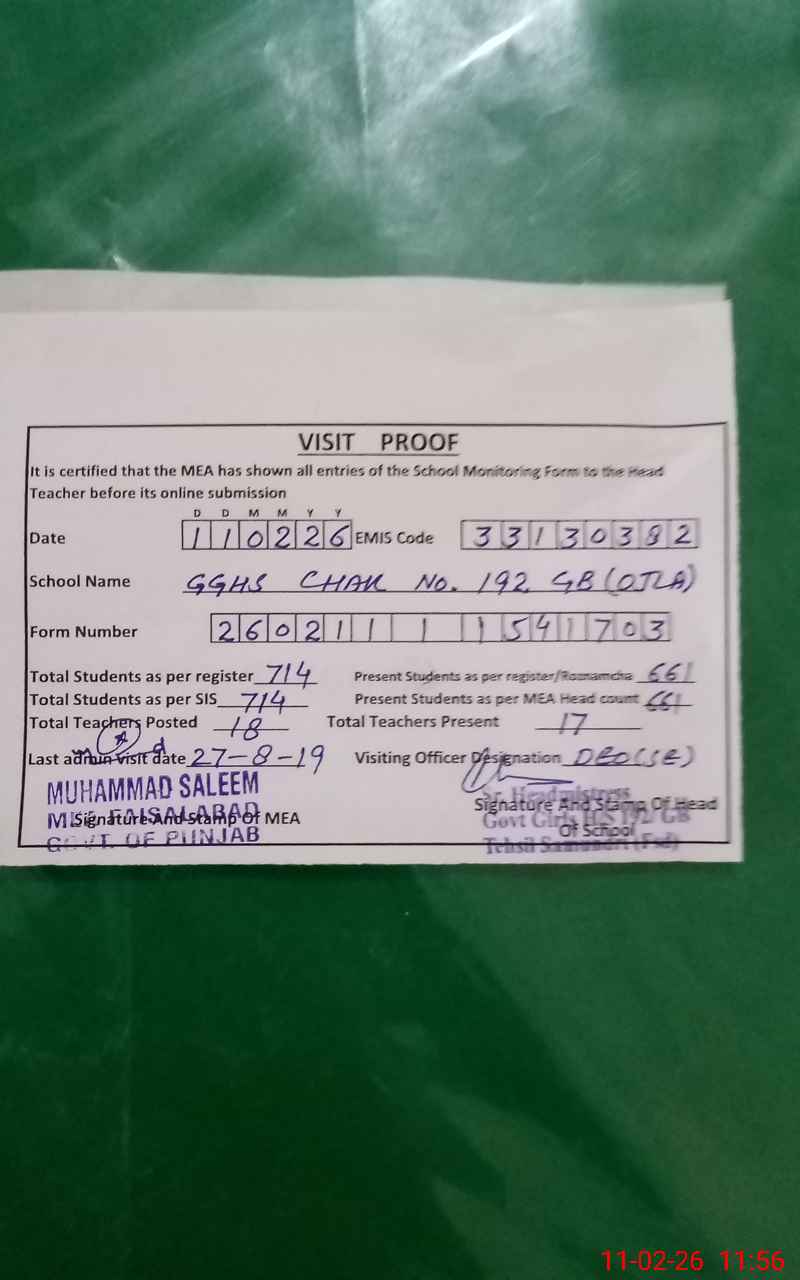 VISIT PROOF
It is certified that the MEA has shown all entries of the School Monitoring Form to the Head
Teacher before its online submission
D D M M Y Y
Date 110226 EMIS Code 33130382
School Name GGHS CHAK No. 192 GB (OJLA)
Form Number 26021111541703
Total Students as per register 714 Present Students as per register/Roznamcha 661
Total Students as per SIS 714 Present Students as per MEA Head count 661
Total Teachers Posted 18 Total Teachers Present 17
Last admin visit date 27-8-19 Visiting Officer Designation DEO(SE)
MUHAMMAD SALEEM
Sr. Headmistress
Signature And Stamp Of MEA Signature And Stamp Of Head
FAISALABAD Govt Girls H/S 192/GB
Of School
GOVT. OF PUNJAB Tehsil Samundri (Fsd)
11-02-26 11:56